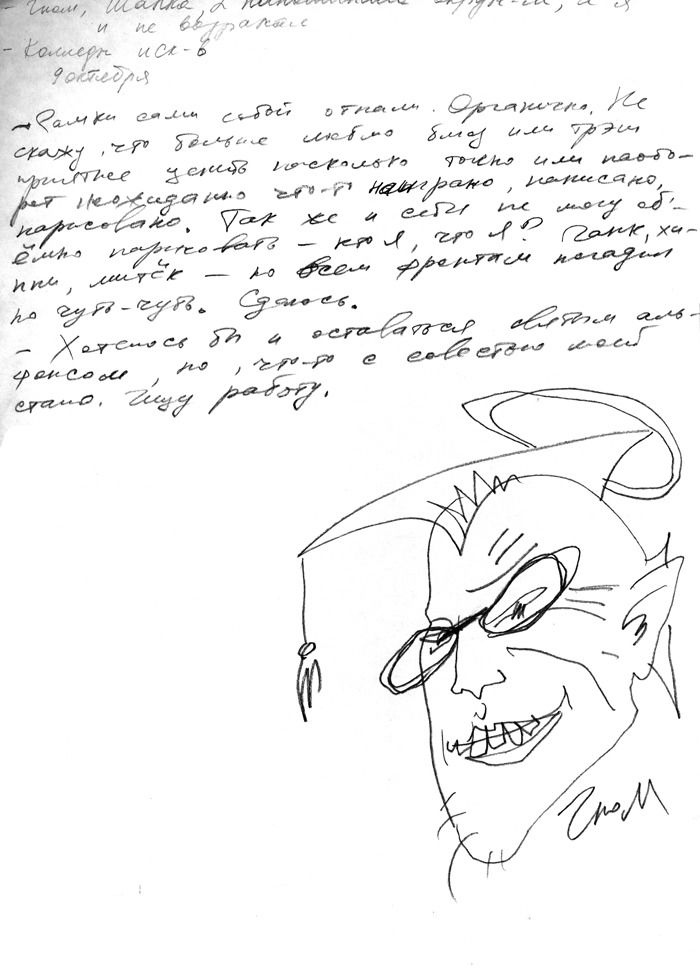 - Гном, Шапка, 2
и не возражаю
- Колледж иск-в
9 октября
- Рамки сами собой отпали. Органично. Не
скажу, что больше люблю блюз или трэш
приятнее ценить насколько точно или наобо-
рот неожиданно что-то наиграно, написано,
нарисовано. Так же и себя не могу об'-
ёмно нарисовать - кто я, что я? Панк, хи-
ппи, митёк - по всем фронтам нагадил
по чуть-чуть. Сдаюсь.
- Хотелось бы и оставаться святым аль-
фонсом, но, что-то с совестью моей
стало. Ищу работу.
Гном